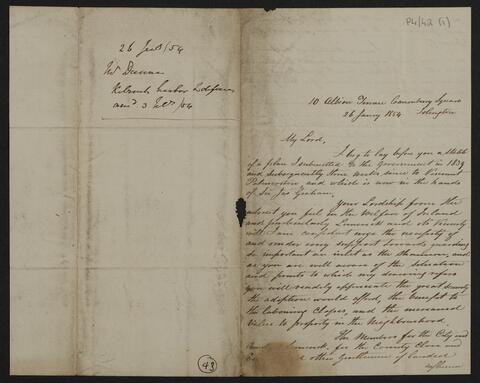 P4/42 (1)
26 Jany /54
Kilrush harbor
3 Feby /54
43
10 Albion Terrace Canonbury Square
Islington
26 Jany 1854
My Lord,
I beg to lay before you a sketch
of a plan I submitted to the Government in 1839
and subsequently three weeks since to Viscount
Palmerston, and which is now in the hands
of Sir Jas Graham.
Your Lordship from the
interest you feel in the Welfare of Ireland
and particularly Limerick and its County
will I am confident urge the necessity of
and render every support towards guarding
so important an inlet as the Shannon, and
as you are well aware of the situation
and points to which my drawing refers
you will readily appreciate the great security
the adoption would afford, the benefit to
the labouring Classes, and the increased
Value to property in the Neighbourhood
The Members for the City and
Limerick, for the County Clare and
other Gentlemen of landed
influence